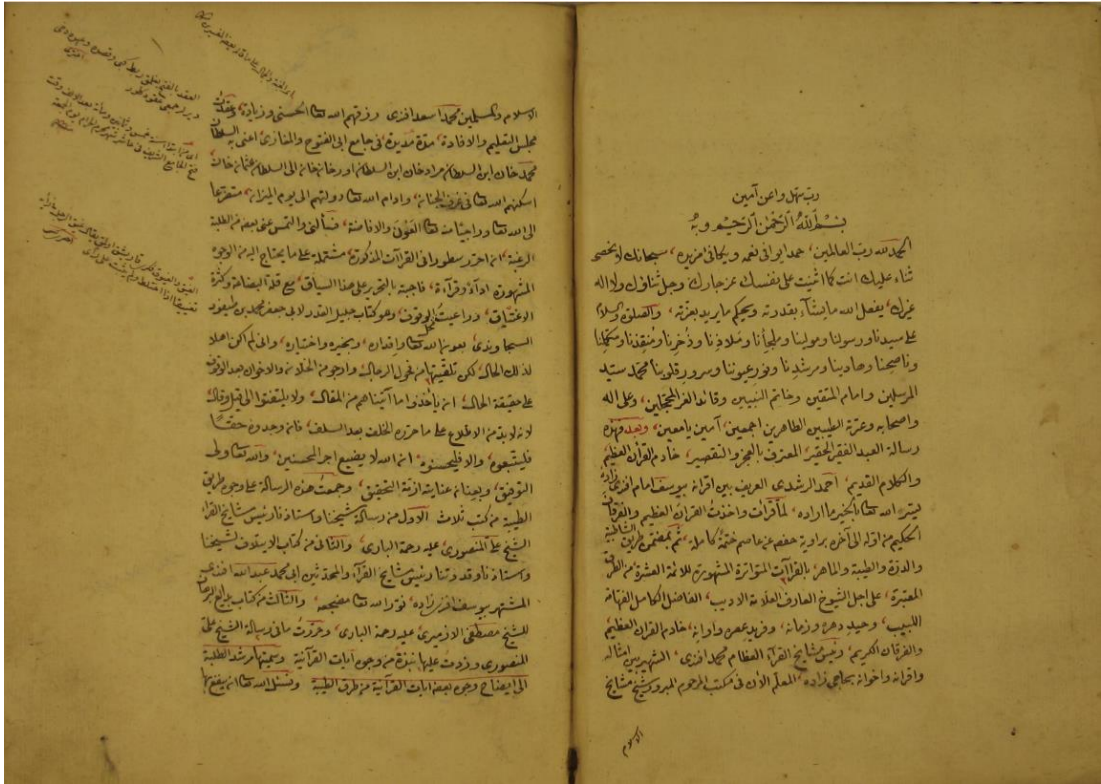 رب سهل واعن آمين
بسم الله الرحمن الرحيم وبه
الحمد لله رب العالمين، حمدا يوافى نعمه ويكافئ مزيده، سبحانك لا نحصى
ثناء عليك انت كما اثنيت على نفسك عز جارك وجل ثناؤك ولا اله
غيرك، يفعل الله ما يشآء بقدرته ويحكم ما يريد بعزته، والصلوة والسلام
على سيدنا ورسولنا ومولينا وملجأنا وملاذنا وذخرنا ومنقذنا ومكملنا
وناصحنا وهادينا ومرشدنا ونور عيوننا وسرور قلوبنا محمد سيد
المرسلين وامام المتقين وخاتم النبيين وقائد الغر المحجلين، وعلى اله
واصحابه وعترته الطيبين الطاهرين اجمعين، آمين يا معين، وبعد فهذه
رسالة العبد الفقير الحقير، المعترف بالعجز والتقصير، خادم القرآن العظيم
والكلام القديم، احمد الرشدى العريف بين اقرانه بيوسف امام افندى زاده
يسر الله تعالى بالخير ما اراده، لما قرأت واخذت القرآن العظيم والفرقان
الحكيم من اوله الى آخره برواية حفص عن عاصم ختمة كاملة، ثم بمضمن طريق الشاطبية
والدرة والطيبة والماهر، بالقراآت المتواترة المشهورة للائمة العشرة من الطرق
المعتبرة، على اجل الشيوخ العارف العلامة الاديب، الفاضل الكامل الفهامة
اللبيب، وحيد دهره وزمانه، وفريد عصره واوانه، خادم القرآن العظيم
والفرقان الكريم، ورئيس مشايخ القرآء العظام محمد افندى، الشهير بين امثاله
واقرانه واخوانه بحاجى زاده، المعلم الآن فى مكتب المرحوم المبرور شيخ مشايخ
الاسلام
الاسلام والمسلمين محمد اسعد افندى ورزقهم الله تعالى الحسنى وزيادة، وعقدت
مجلس التعليم والافادة، مدة مديدة، فى جامع ابى الفتوح والمغازى، اعنى به السلطان
محمد خان ابن السلطان مراد خان ابن السلطان اورخان خان الى السلطان عثمان خان
اسكنهم الله تعالى فى غرف الجنان، وادام الله تعالى دولتهم الى يوم الميزان، متضرعا
الى الله تعالى وراجيا منه تعالى العون والافاضة، فسألنى والتمس عنى بعض من الطلبة
الرغبة، ان احرر سطورا فى القراآت المذكورة، مشتملة على ما يحتاج اليه من الوجوه
المشهورة ادآء وقرآءة، فاجبته بالتحرير على هذا السياق، مع قلة البضاعة وكثرة
وراعيت الوقوف، وهو كتاب جليل القدر لابى جعفر محمد بن طيفور
السجاوندى، بعون الله تعالى واقداره، وبخيره واختياره، وانى لم اكن اهلا
لذلك الحال، لكن تلقيتها من فحول الرجال، وارجو من الخلان والاخوان بعد الوقوف
على حقيقة الحال، ان يأخذوا ما آتيناهم من المقال، ولا يلتفتوا الى قيل وقال،
لانه لا بد من الاطلاع على ما حرره الخلف بعد السلف، فان وجدوه حقا
فليتبعوه، والا فليحسنوه، ان الله لا يضيع اجر المحسنين، والله تعالى ولى
التوفيق، وبعنانه عناية ازمة التحقيق، وجمعت هذه الرسالة على وجوه طريق
الطيبة من كتب ثلاث الاول من رسالة شيخنا واستاذنا رئيس مشايخ القرآء
الشيخ على المنصورى، عليه رحمة البارى، والثانى من كتاب الايتلاف لشيخنا
واستاذنا وقدوتنا رئيس مشايخ القرآء والمحدثين ابى محمد عبد الله افندى
المشتهر بيوسف افندى زاده، نور الله تعالى مضجعه، والثالث من كتاب بدايع البرهان
للشيخ مصطفى الازميرى، عليه رحمة البارى، وحررت ما فى رسالة الشيخ على
المنصورى وزدت عليها نبذة من وجوه آيات القرآنية وسميتها مرشد الطلبة
الى ايضاح وجوه بعض آيات القرآنية من طرق الطيبة ونسئل الله تعالى ان ينفع بها